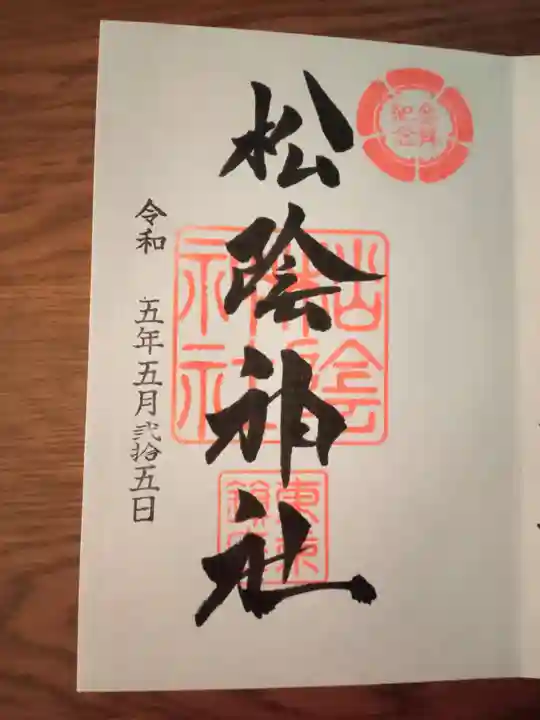 松陰神社
令和 五年五月弐拾五日
松陰神社